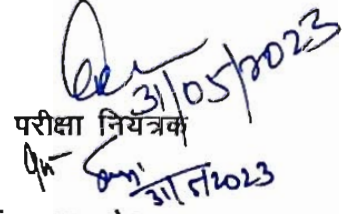 31/05/2023
परीक्षा नियंत्रक
31/5/2023